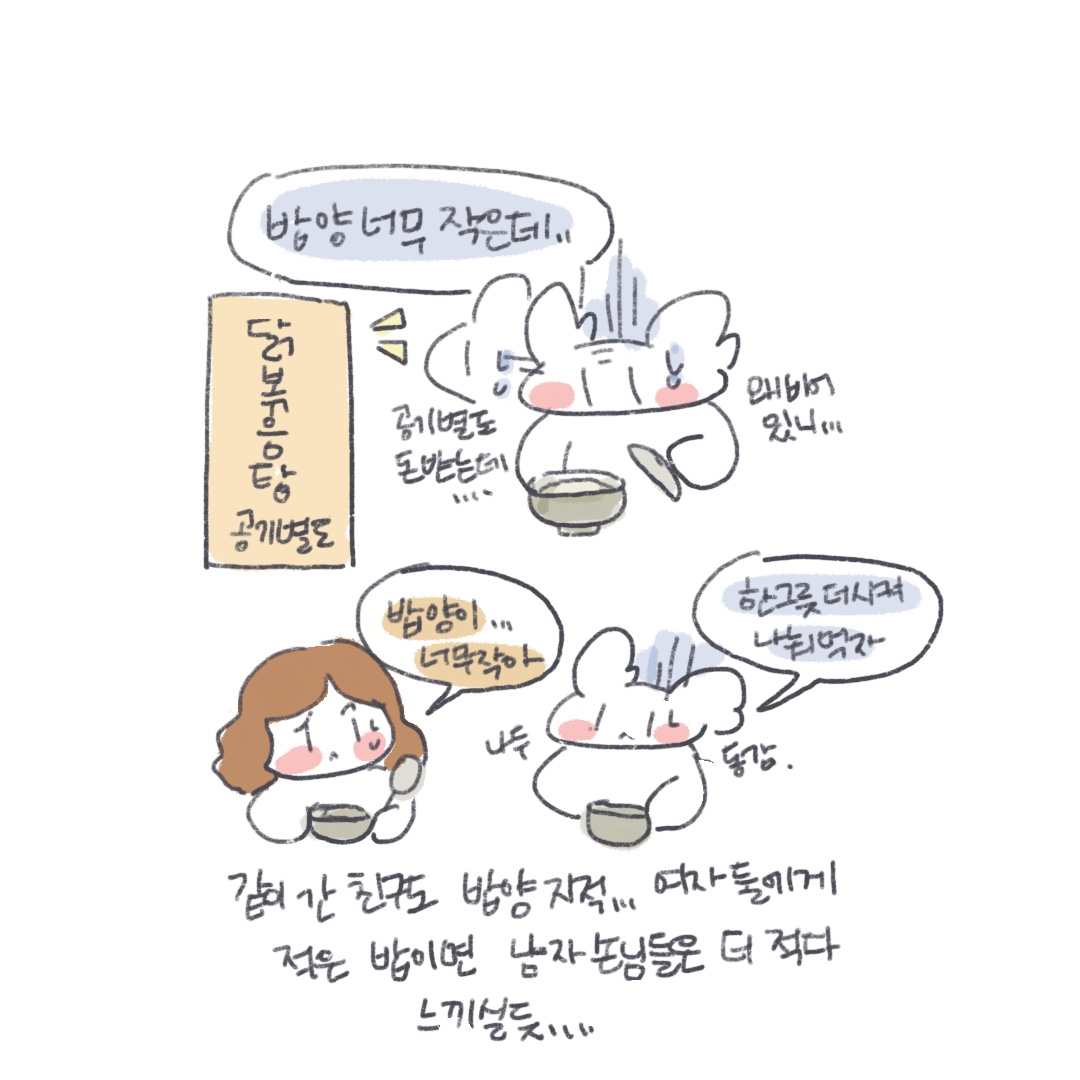 밥양 너무 작은데..
닭
볶
음
탕
공기별도
공기별도
돈받는데
....
왜비어
있니...
밥양이...
너무작아
한그릇 더시켜
나눠먹자
나두
동감.
같이 간 친구도 밥양 지적... 여자 둘에게
적은 밥이면 남자 손님들은 더 적다
느끼실듯....